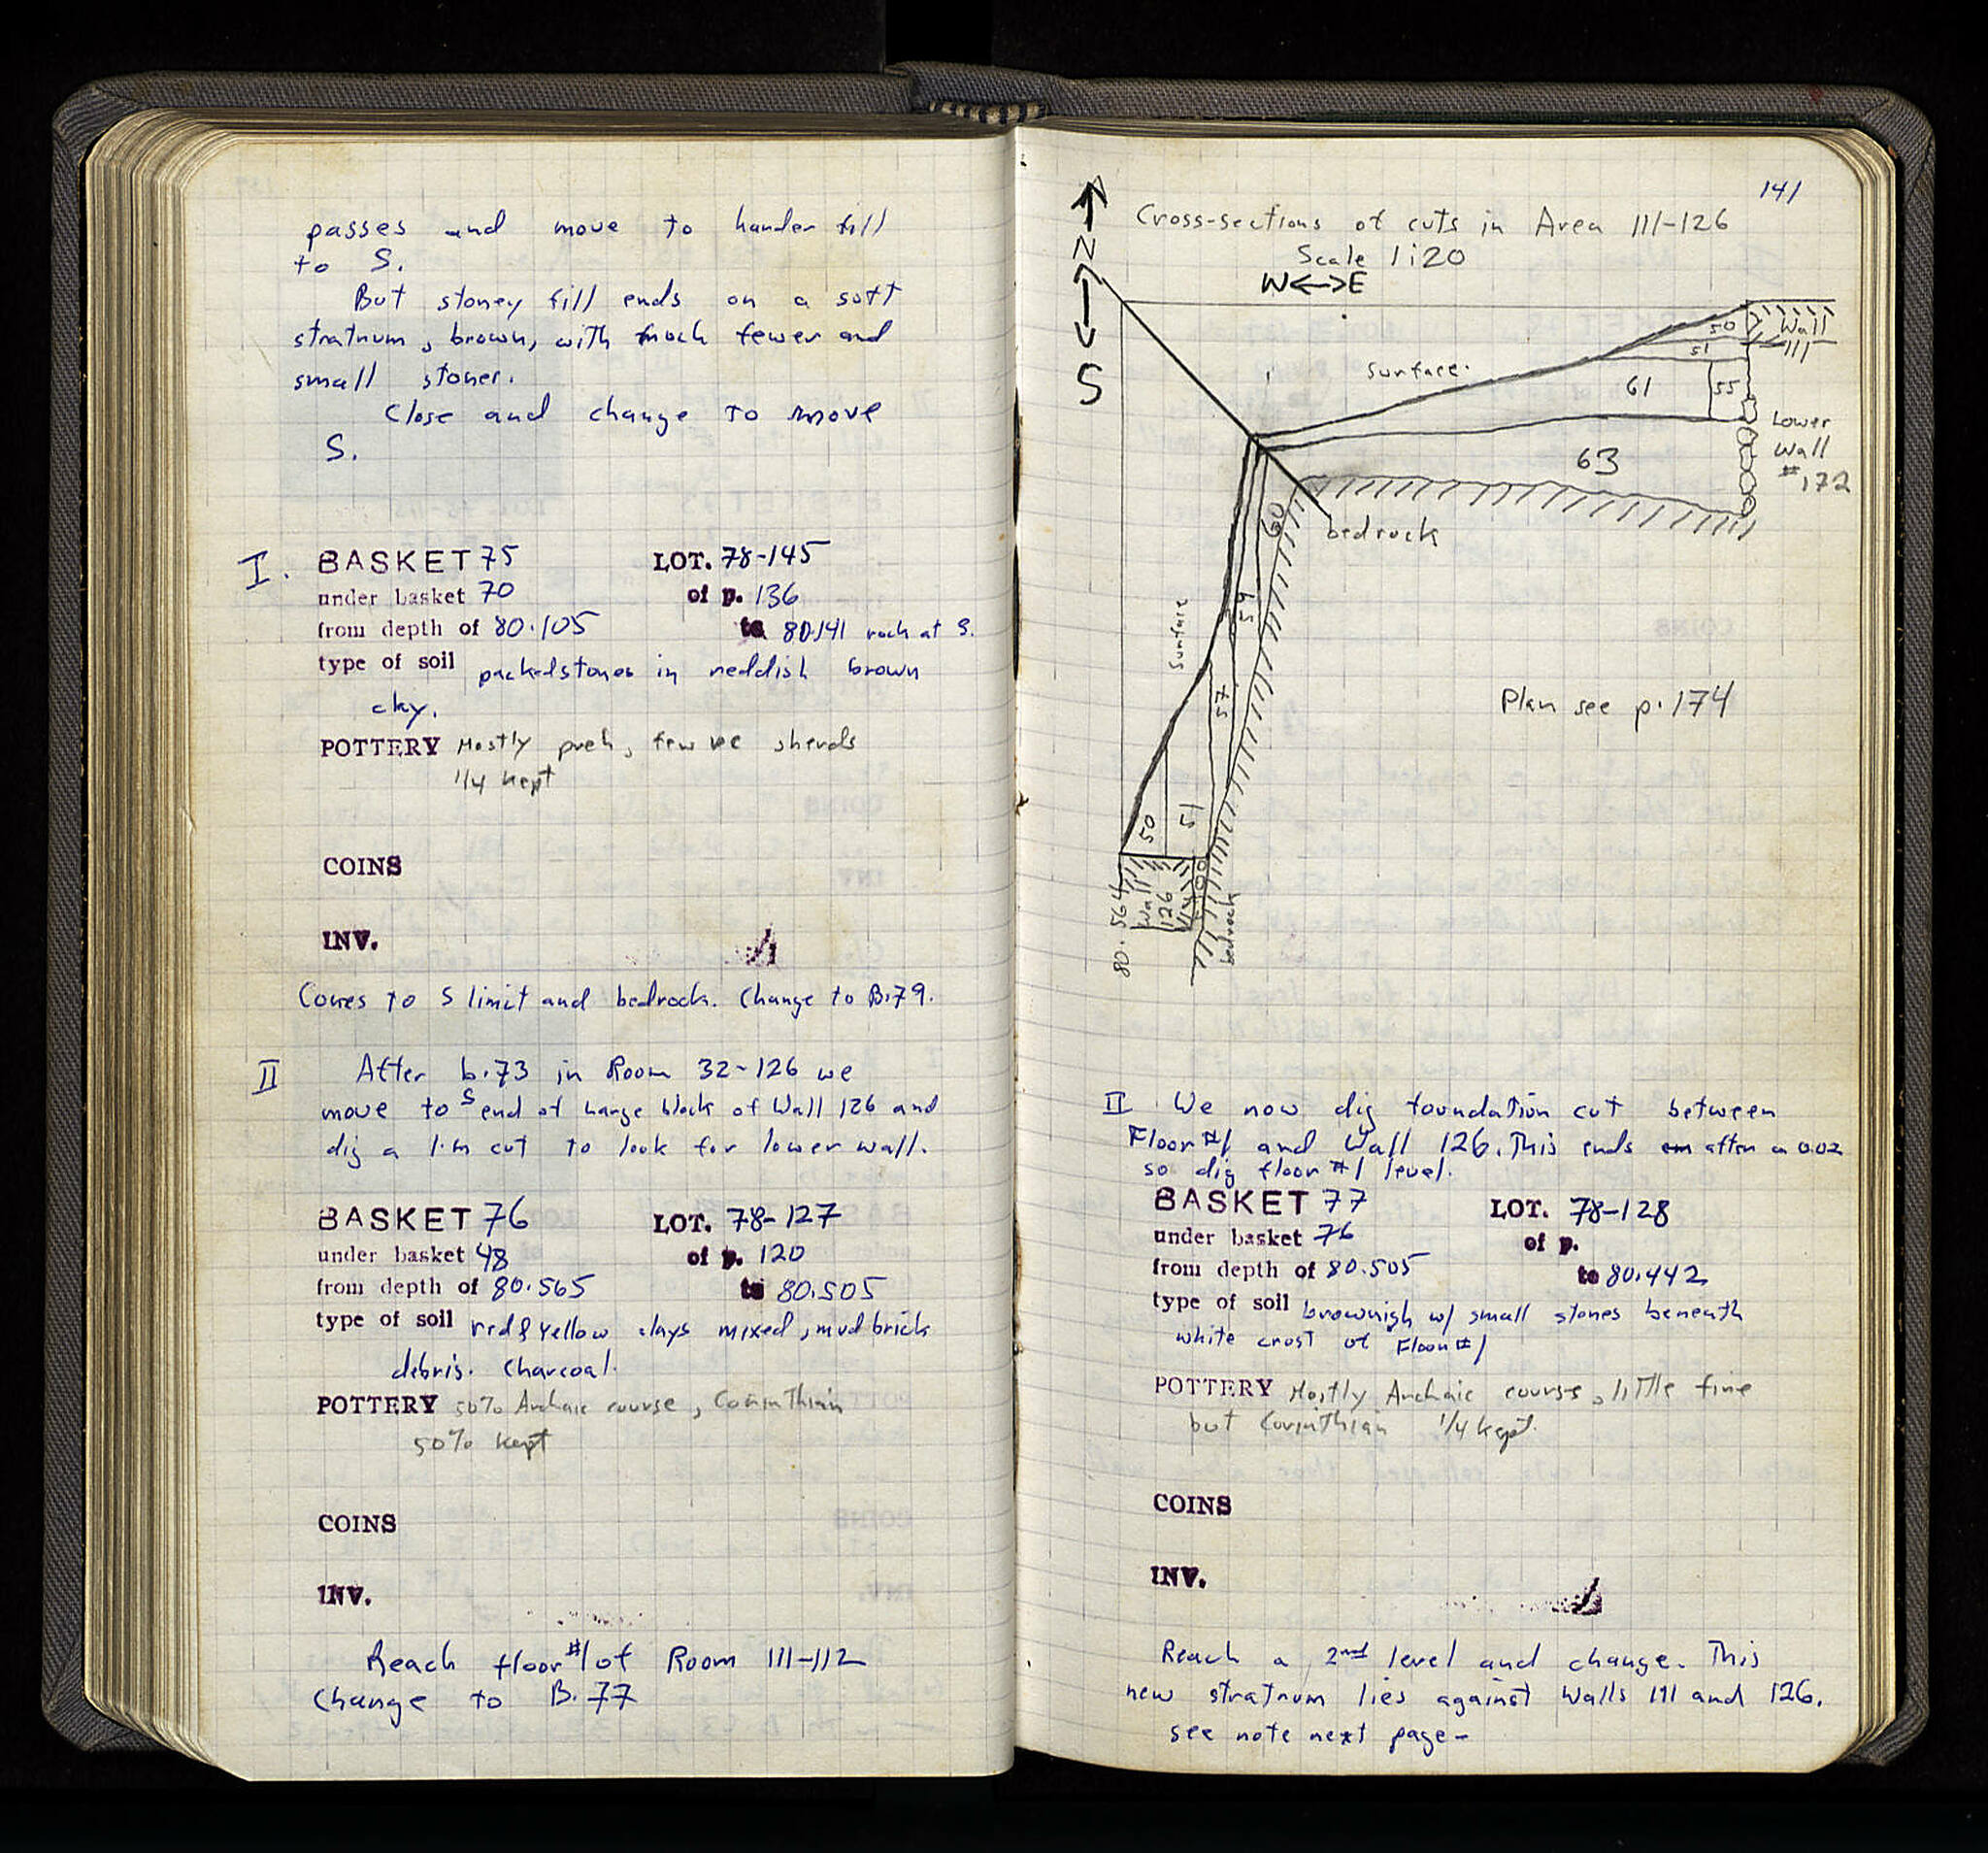 passes and move to harder fill
to S.
But stoney fill ends on a soft
stratum, brown, with much fewer and
small stones.
Close and change to move
S.
I. BASKET 75 LOT. 78-145
under basket 70 of p. 136
from depth of 80.105 to 80.141 rock at S.
type of soil packed stones in reddish brown
clay.
POTTERY Mostly preh, few sherds
1/4 kept
COINS
INV.
Comes to S limit and bedrock. Change to B.79.
II After b.73 in Room 32-126 we
move to S end of large block of Wall 126 and
dig a 1.m cut to look for lower wall.
BASKET 76 LOT. 78-127
under basket 48 of p. 120
from depth of 80.565 to 80.505
type of soil red & yellow clays mixed, mud brick
debris. Charcoal.
POTTERY 50% Archaic course, Corinthian
50% kept
COINS
INV.
Reach floor #1 of Room 111-112
Change to B.77
141
Cross-sections of cuts in Area 111-126
Scale 1:20
W<->E
N
S
surface
50
Wall
111
51
61
55
Lower
Wall
#172
63
bedrock
60
59
57
surface
50
51
Wall
126
80.564
bedrock
Plan see p. 174
II We now dig foundation cut between
Floor #1 and Wall 126. This ends after 0.02
so dig floor #1 level.
BASKET 77 LOT. 78-128
under basket 76 of p.
from depth of 80.505 to 80.442
type of soil brownish w/ small stones beneath
white crust of Floor #1
POTTERY Mostly Archaic course, little fine
but Corinthian 1/4 kept.
COINS
INV.
Reach a 2nd level and change. This
new stratum lies against Walls 111 and 126.
see note next page-